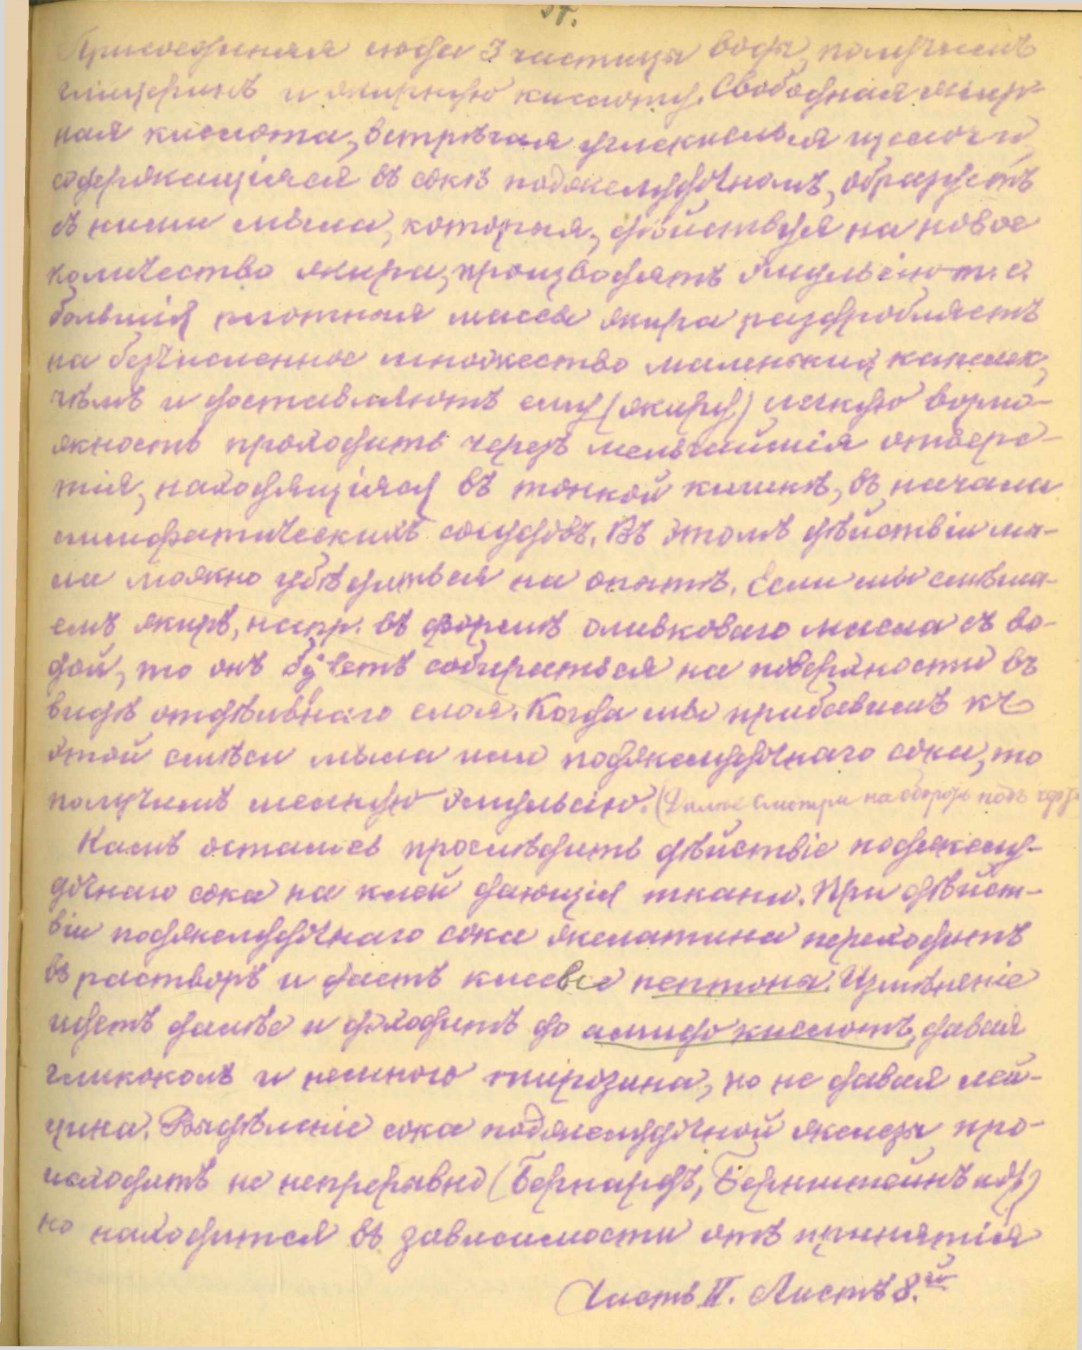 57.
Присоединяя сюда 3 частицы воды, получимъ
глицеринъ и жирную кислоту. Свободная жир-
ная кислота, встрѣчая углекислыя щелочи,
содержащіяся въ сокѣ поджелудочномъ, образуетъ
съ ними мыла, которыя, дѣйствуя на новое
количество жира, производятъ эмульсію т. е.
большія плотныя массы жира раздробляютъ
на безчисленное множество маленькихъ капелекъ,
чѣмъ и доставляютъ ему (жиру) легкую возмо-
жность проходить черезъ мельчайшія отверс-
тія, находящіяся въ тонкой кишкѣ, въ начала
лимфатическихъ сосудовъ. Въ этомъ дѣйствіи мы-
ла можно убѣдиться на опытѣ. Если мы смѣша-
емъ жиръ, напр. въ формѣ оливковаго масла съ во-
дой, то онъ будетъ собираться на поверхности въ
видѣ отдѣльнаго слоя. Когда мы прибавимъ къ
этой смѣси мыла или поджелудочнаго сока, то
получимъ мелкую эмульсію. (Далее смотри на оборотѣ подъ
Намъ осталось прослѣдить дѣйствіе поджелу-
дочнаго сока на клей дающія ткани. При дѣйст-
віи поджелудочнаго сока желатина переходитъ
въ растворъ и даетъ клеевые пептоны. Измѣненіе
идетъ далѣе и доходитъ до амидокислотъ, давая
гликоколъ и немного тирозина, но не давая лей-
цина. Выдѣленіе сока поджелудочной железы про-
исходитъ не непрерывно (Бернардъ, Бернштейнъ и др.)
но находится въ зависимости отъ принятія
Часть II. Листъ 8.й